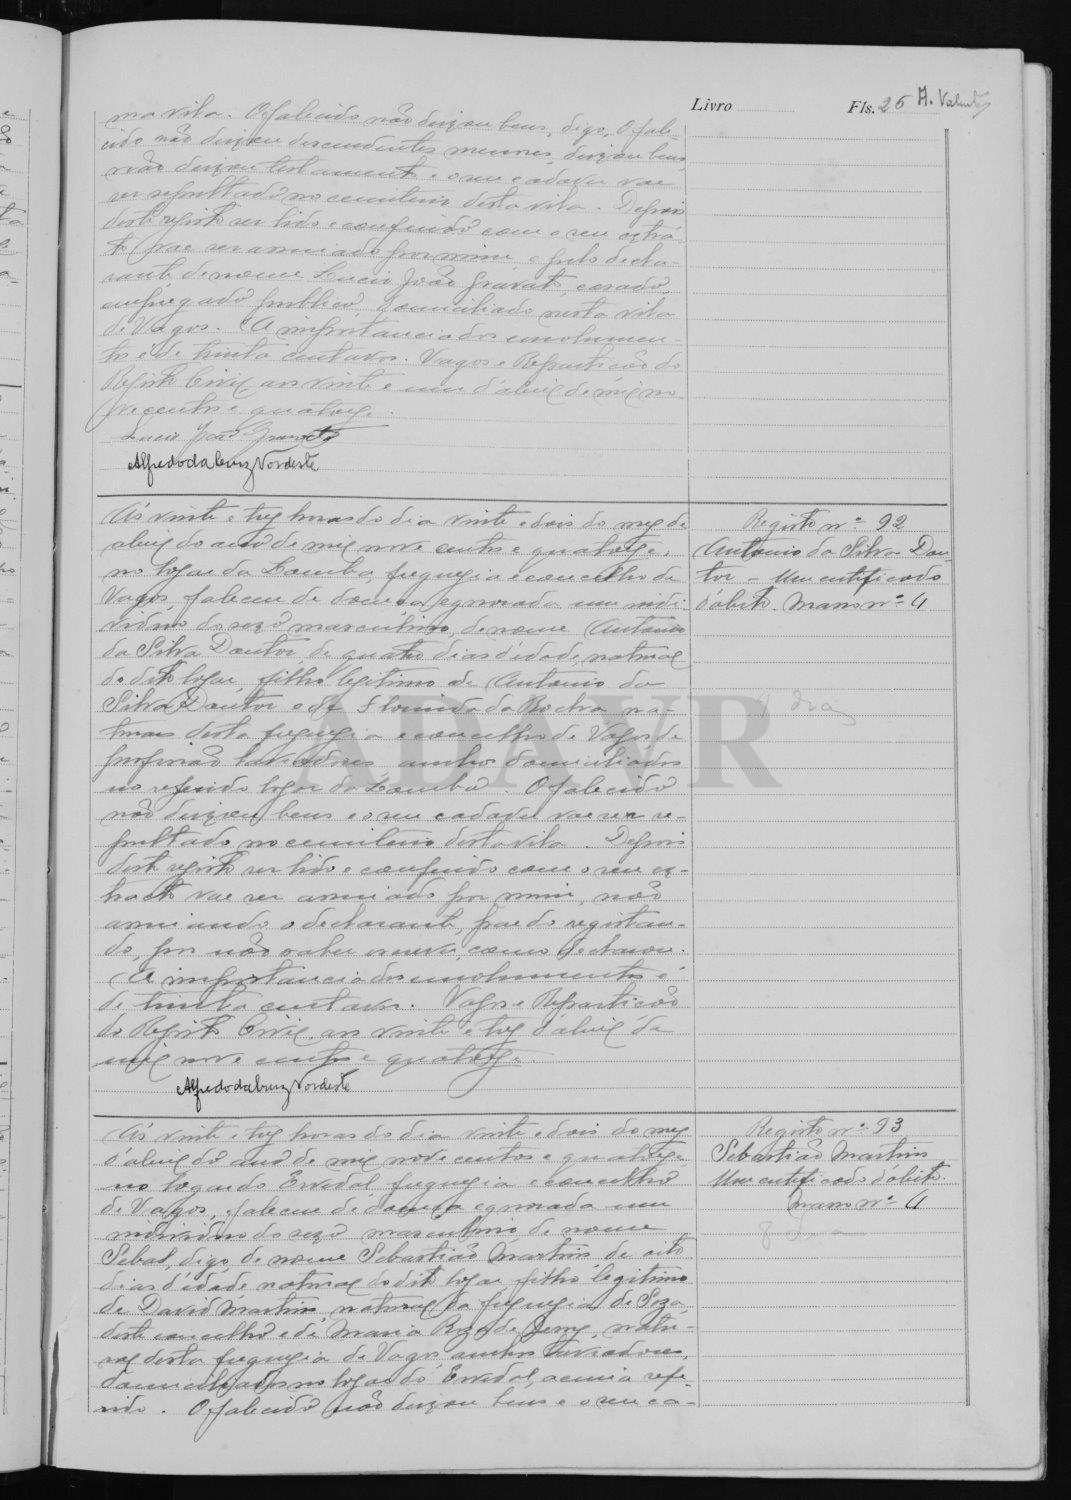 Livro
Fls. 26 A. Valente
ma vila. O falecido não deixou bens, digo, O fale-
cido não deixou descendentes menores, deixou bens
não deixou testamento e o seu cadaver vae
ser sepultado no cemiterio desta vila. Depois
deste registo ser lido e conferido com o seu extrá-
to vae ser assinado por mim e pelo decla-
rante de nome Lucio João Gravato, casado,
empregado publico, domiciliado nesta vila
de Vagos. A importancia dos emolumen-
tos é de trinta centavos. Vagos e Repartição do
Registo Civil, aos vinte e um d'abril de mil no-
vecentos e quatorze.
Lucio João Gravato
Alfredo da Cruz Nordeste
Registo nº 92
Antonio da Silva Dou-
tor - Um certificado
d'obito. Maço nº 4
4 dias
Ás vinte e trez horas do dia vinte e dois do mez de
abril do ano de mil nove centos e quatorze,
no logar da Lomba, freguezia e concelho de
Vagos, faleceu de doença ignorada um indi-
viduo do sexo masculino, de nome Antonio
da Silva Doutor, de quatro dias d'idade, natural
do dito logar, filho legitimo de Antonio da
Silva Doutor e de Florinda da Rocha, na-
turaes desta freguezia e concelho de Vagos, de
profissão lavradores, ambos domiciliados
no referido logar da Lomba. O falecido
não deixou bens e o seu cadaver vae ser se-
pultado no cemiterio desta vila. Depois
deste registo ser lido e conferido com o seu ex-
tracto vae ser assinado por mim, não
assinando o declarante, pae do registan-
do, por não saber escrever, como declarou.
A importancia dos emolumentos é
de trinta centavos. Vagos e Repartição
do Registo Civil, aos vinte e trez d'abril de
mil nove centos e quatorze.
Alfredo da Cruz Nordeste
ADAVR
Registo nº 93
Sebastião Martins
Um certificado d'obito.
Maço nº 4
8 dias
Ás vinte e trez horas do dia vinte e dois do mez
d'abril do ano de mil nove centos e quatorze
no logar do Ervedal, freguezia e concelho
de Vagos, faleceu de doença ignorada um
individuo do sexo masculino de nome
Sebast, digo, de nome Sebastião Martins, de oito
dias d'idade, natural do dito logar, filho legitimo
de David Martins, natural da freguezia de Soza,
deste concelho e de Maria Roza de Jesus, natu-
ral desta freguezia de Vagos, ambos lavradores,
domiciliados no logar do Ervedal, acima refe-
rido. O falecido não deixou bens e o seu ca-